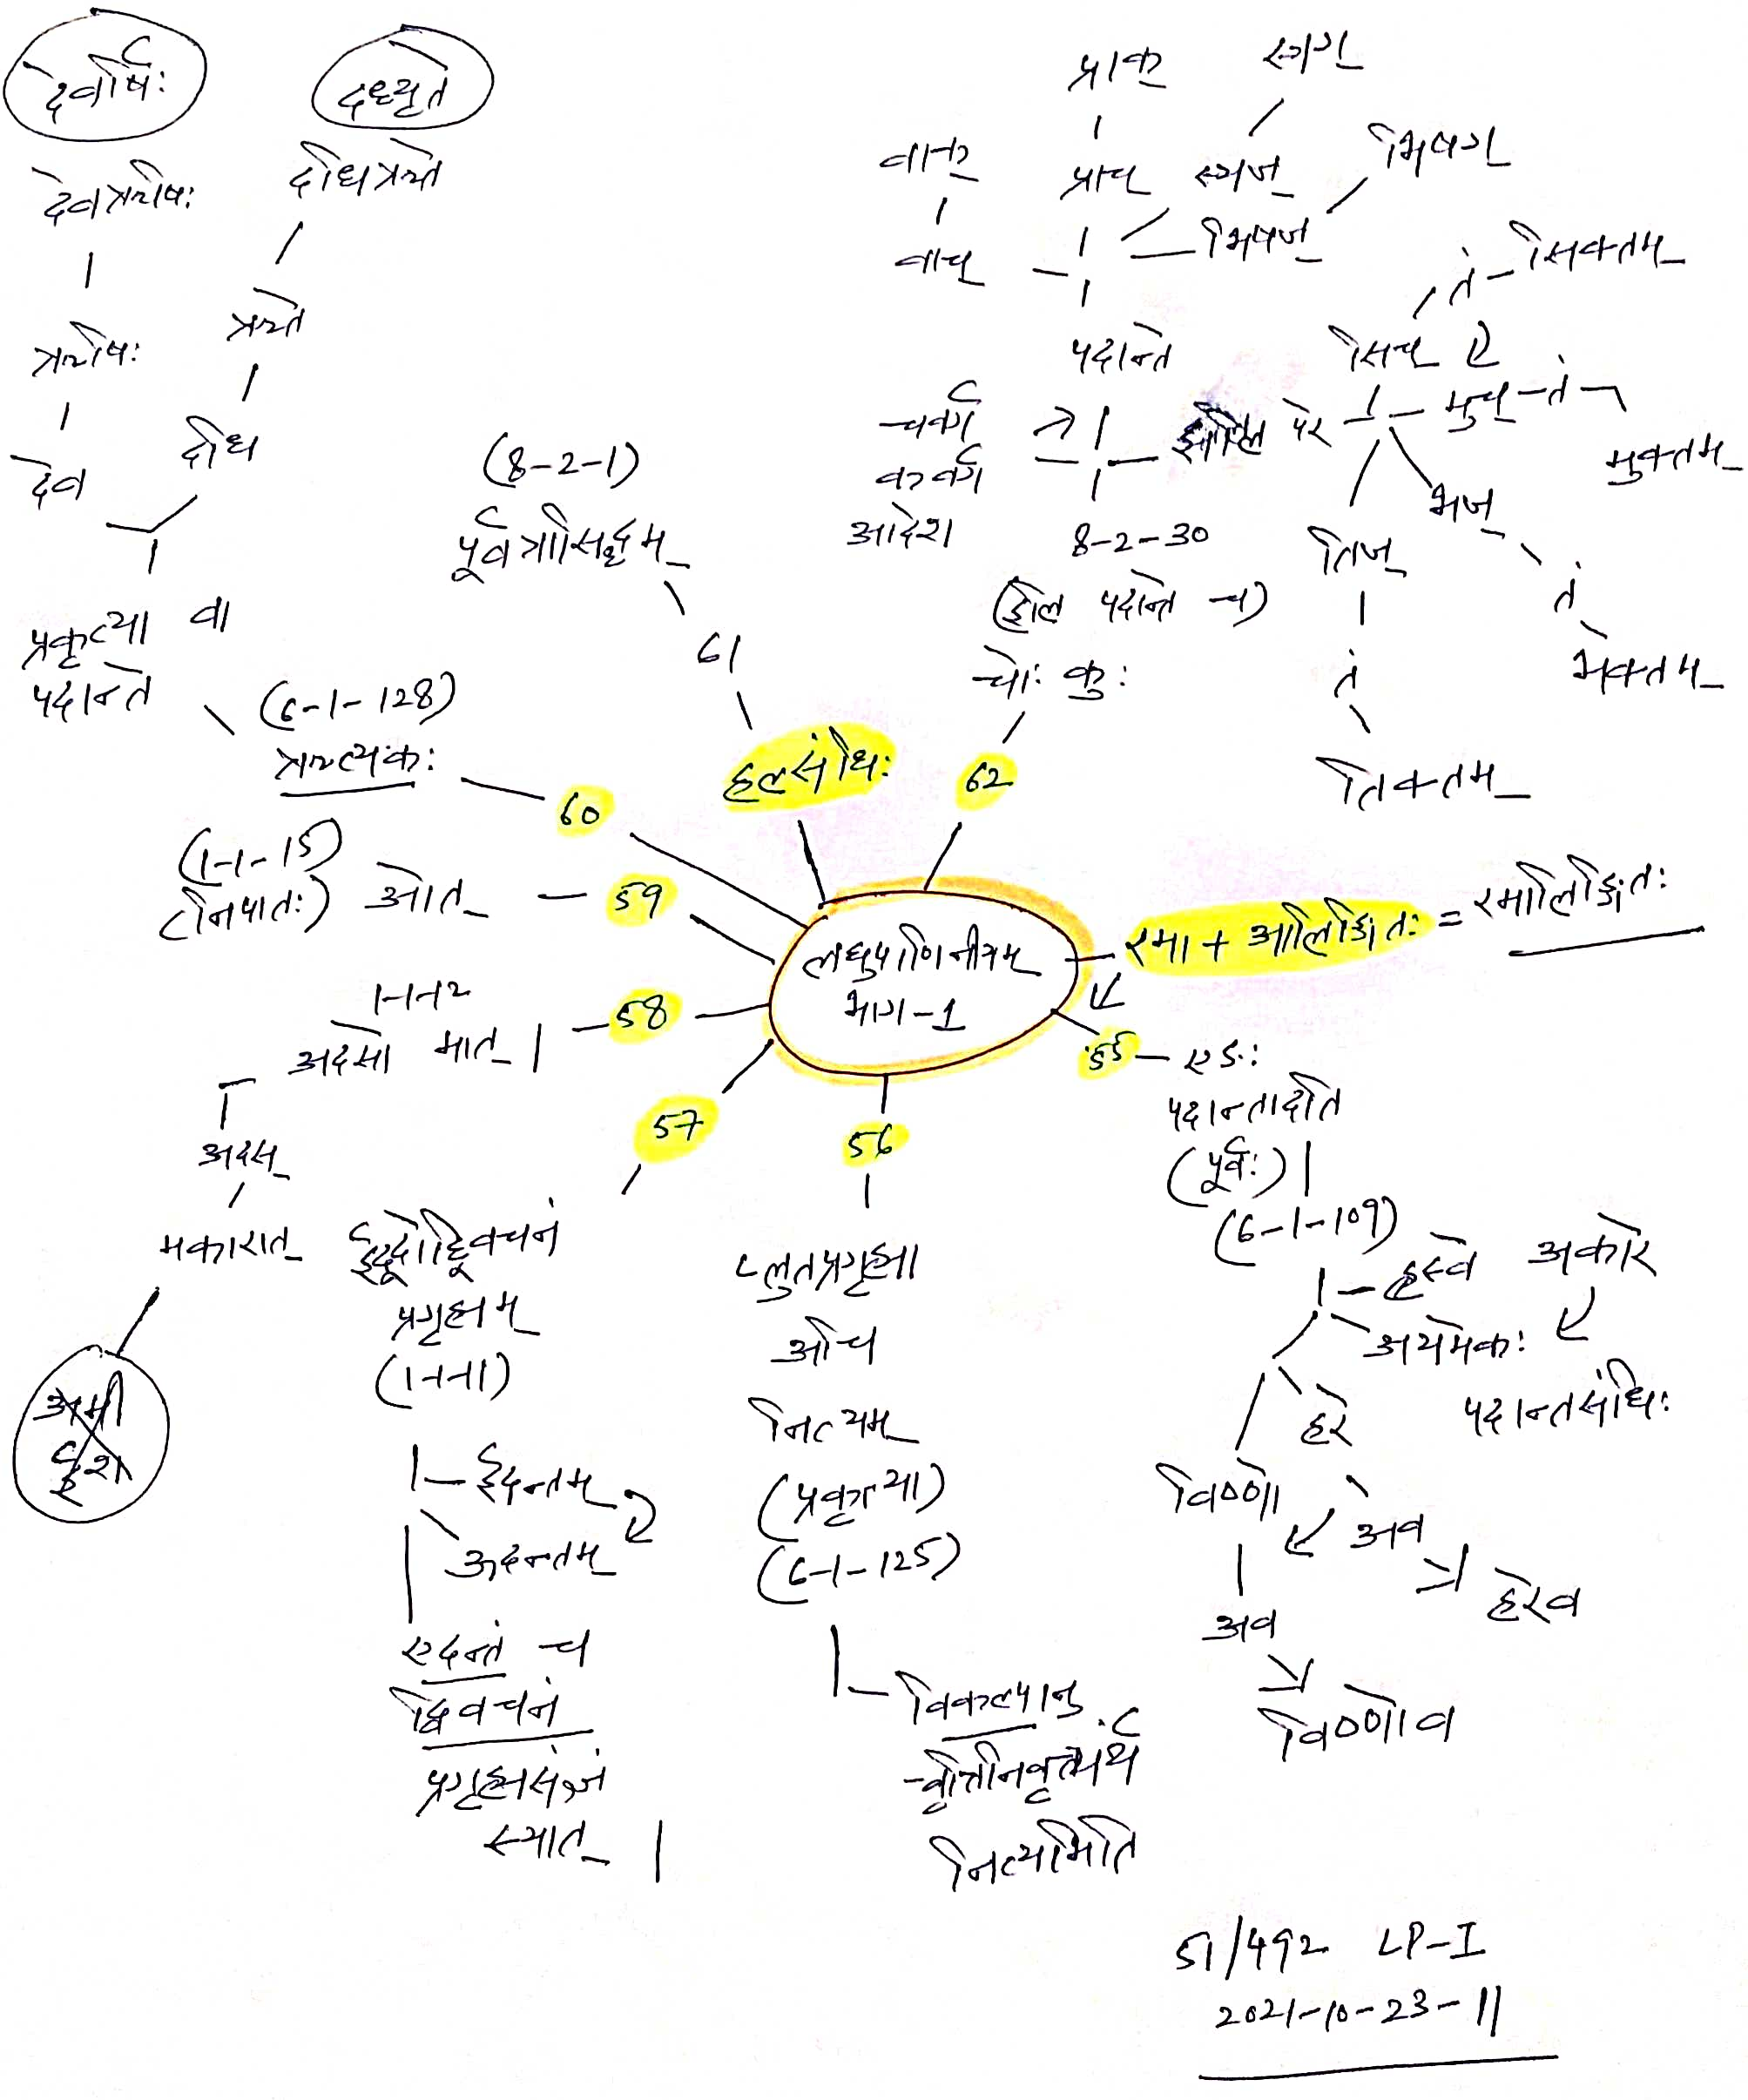 देवर्षिः
देवऋषिः
ऋषिः
देव
दध्यृते
दधि ऋते
ऋते
दधि
प्रकृत्या वा
पदान्ते
(6-1-128)
ऋत्यकः
60
(8-2-1)
पूर्वत्रासिद्धम्
61
हल् संधिः
प्राक्
प्राच्
वाक्
वाच्
स्रग्
स्रज्
भिषग्
भिषज्
पदान्ते
चवर्ग
कवर्ग
आदेश
झलि परे
8-2-30
(झलि पदान्ते च)
चोः कुः
62
सिच्
तं - सिक्तम्
मुच् - तं
मुक्तम्
भज्
तं
भक्तम्
तिज्
तं
तिक्तम्
(1-1-15)
(निपातः) ओत्
59
लघुपाणिनीयम्
भाग-1
रमा + आलिङ्गितः = रमालिङ्गितः
1-1-12
अदसो मात् |
58
अदस्
मकारात्
अमी
ईशा
57
ईदूदेद्द्विवचनं
प्रगृह्यम्
(1-1-11)
ईदन्तम्
ऊदन्तम्
एदन्तं च
द्विवचनं
प्रगृह्यसंज्ञं
स्यात् |
56
प्लुतप्रगृह्या
अचि
नित्यम्
(प्रकृत्या)
(6-1-125)
विकल्पानु
-वृत्तिनिवृत्त्यर्थं
नित्यमिति
55 - एङः
पदान्तादति
(पूर्वः) |
(6-1-109)
ह्रस्वे अकारे
अयमेकः
पदान्तसंधिः
हरे
अव
हरेव
विष्णो
अव
विष्णोव
51/492 LP-I
2021-10-23-11